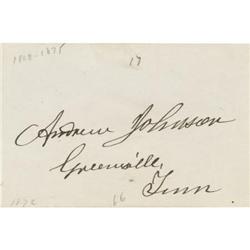 1808-1875
17
Andrew Johnson
Greenville,
Tenn
66